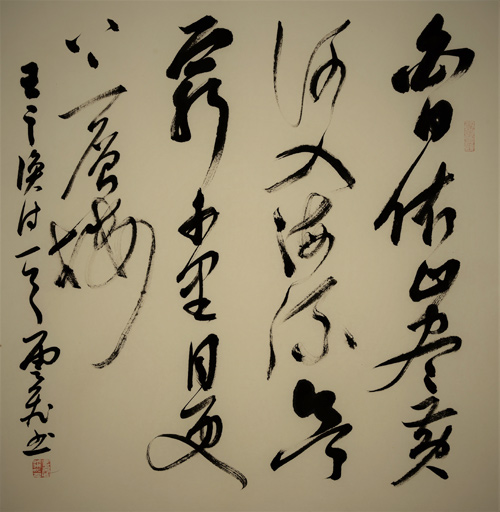 白日依山尽黄
河入海流欲
窮千里目更
上一層楼
王之涣诗一首 雲书